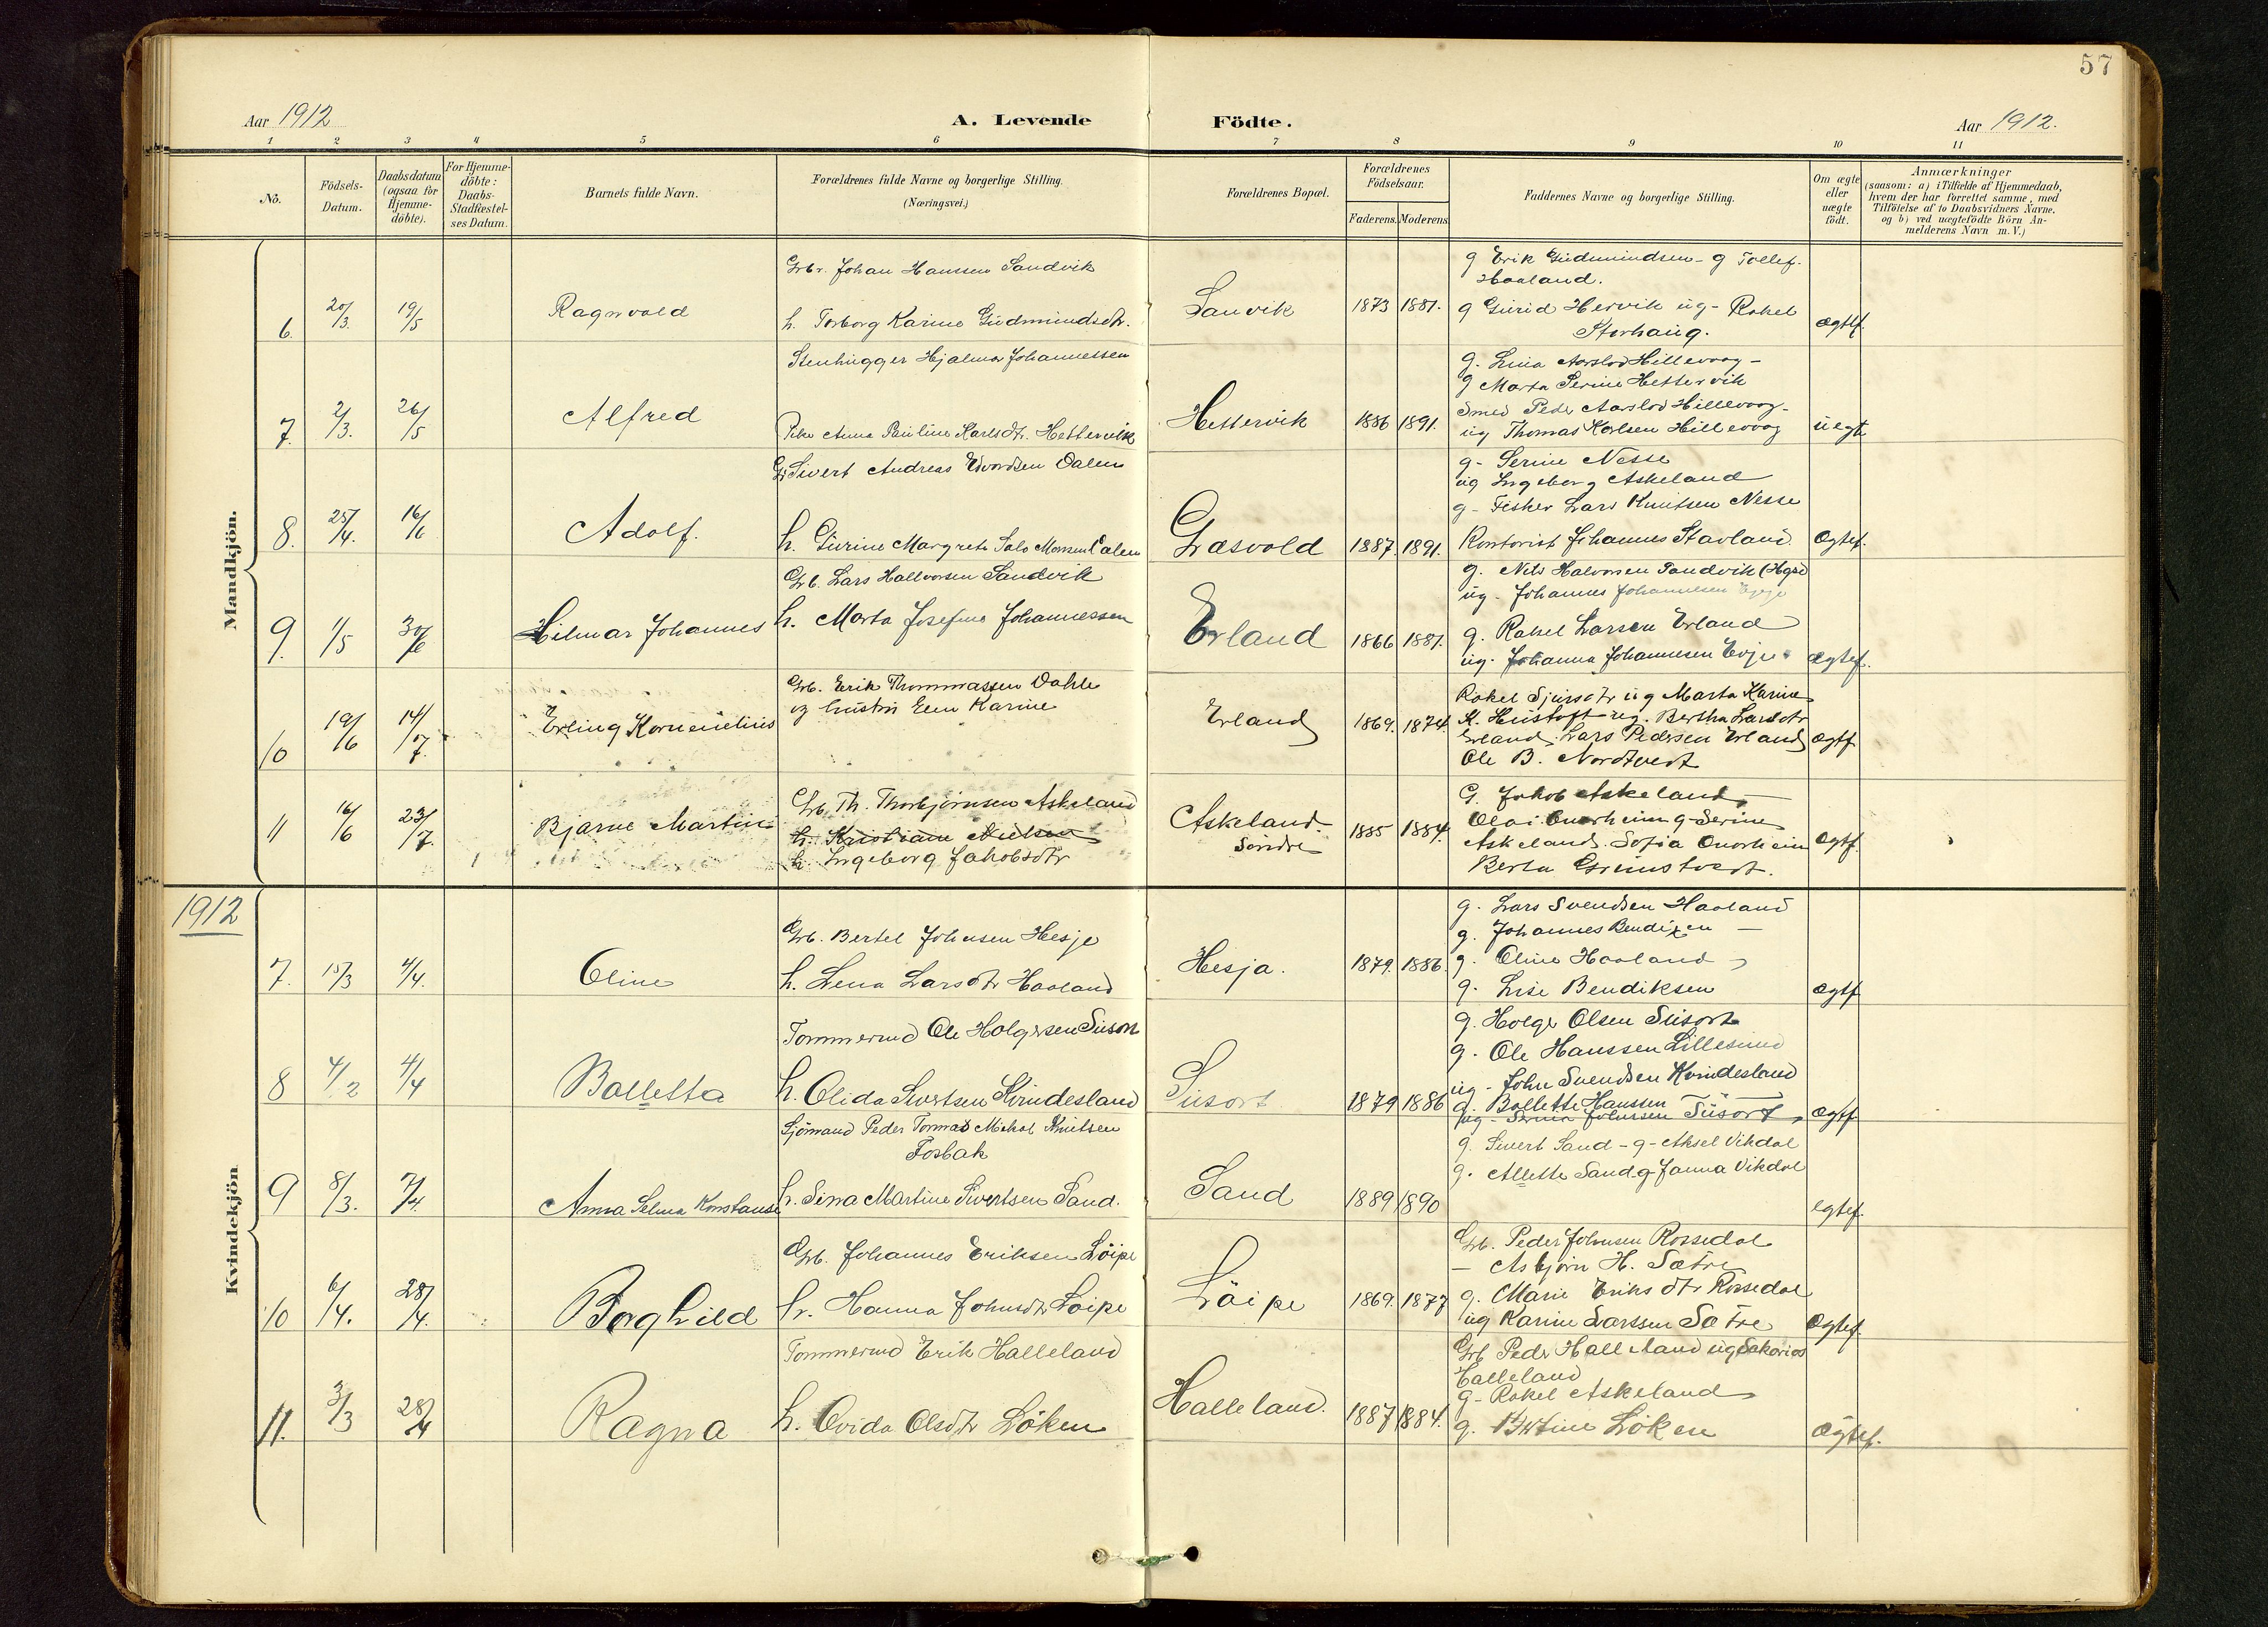 57
Aar 1912
A. Levende Födte.
Aar 1912.
1 2 3 4 5 6 7 8 9 10 11
No.
Födsels-Datum.
Daabsdatum (ogsaa for Hjemme-döbte).
For Hjemme-döbte: Daabs-Stadfæstel-ses Datum.
Barnets fulde Navn.
Forældrenes fulde Navne og borgerlige Stilling.
(Næringsvei.)
Forældrenes Bopæl.
Forældrenes Födselsaar.
Faderens. Moderens.
Faddernes Navne og borgerlige Stilling.
Om ægte eller uægte födt.
Anmærkninger
(saasom: a) i Tilfælde af Hjemmedaab,
hvem der har forrettet samme, med
Tilföielse af to Daabsvidners Navne,
og b) ved uægtefödte Börn An-
melderens Navn m. V.)
Mandkjön.
6. 20/3. 19/5 Ragnvald
Grbr. Johan Hanssen Sandvik
h. Torborg Karine Gudmundsdtr.
Sanvik 1873 1881.
g Erik Gudmundsen - g Tollef.
Haaland.
g Gurid Hervik ug - Rakel
Storhaug.
ægtef.
7. 2/3. 26/5 Alfred
Stenhugger Hjalmar Johannessen
Pike Anna Pauline Karlsdtr. Hettervik
Hettervik 1886 1891.
g. Lina Aarslod Hillevaag -
g Marta Serine Hettervik
Smed Peder Aarslod Hillevaag -
ug Thomas Karlsen Hillevaag
uegt
8. 25/4. 16/6 Adolf.
Sivert Andreas Edvardsen Dalen
h. Gurine Margrete Salo Monsen Dalen
Græsvold 1887. 1891.
g - Serine Nesse
ug Ingeborg Askeland
g - Fisker Lars Knutsen Nesse
Kontorist Johannes Stavland.
Ægtef.
9. 1/5 30/6 Hilmar Johannes
Grb. Lars Hallvorsen Sandvik
h. Marta Josefine Johannessen
Erland 1866 1881.
g. Nils Halvorsen Sandvik
ug - Johannes Johannesen
g. Rakel Larsen Erland
ug. Johanna Johannesen Evje
Ægtef.
10 19/6 14/7. Erling Kornenelius
Grb. Erik Thommassen Dahle
og hustru Elen Karine
Erland 1869. 1874.
Rakel Sjursdtr ug Marta Karine
K. Hustoft ug. Bertha Larsdtr
Erland, Lars Pedersen Erland
Ole B. Nordtvedt
Ægtf.
11 16/6 23/7. Bjarne Martin
Grb. Th. Thorbjørnsen Askeland
h. Kristiane Nielsen
h. Ingeborg Jakobsdtr
Askeland. Söndre 1885 1884.
G. Jakob Askeland, —
Olai Onarheim g - Serine
Askeland. Sofia Onarheim
Berta Grimstvedt.
Ægtf.
1912
Kvindekjön
7. 15/3 4/4. Oline
Grb. Bertel Johnsen Hesje
h. Lena Larsdtr Haaland
Hesja. 1879. 1886.
g. Lars Svendsen Haaland
g. Johannes Bendixen —
g. Oline Haaland
g. Lise Bendiksen
ægtf
8 4/2 4/4 Bolletta
Tommermd Ole Holgersen Susort
h. Olida Sivertsen Kvindesland
Susort 1879 1886
g. Holger Olsen Susort
g. Ole Hanssen Lillesund
ug - John Svendsen Kvindesland
g. Bollette Hanssen
ug - Serina Johnsen Susort,
ægtf
9 8/3. 7/4. Anna Selma Konstanse
Sjömand Peder Tormas Mikal Knutsen
Fosbak
h. Sina Martine Sivertsen Sand.
Sand 1889 1890
g. Sivert Sand - g - Aksel Vikdal
g. Allette Sand - g Janna Vikdal
egtef.
10 6/4. 28/4. Borghild
Grb. Johannes Eriksen Löipe
h. Hanna Johnsdtr Löipe
Löipe 1869. 1877
Grb. Peder Johnsen Rossedal
— Asbjörn H. Sætre
g. Marie Eriksdtr Rossedal
ug Karine Larssen Sætre
Ægtef.
11. 3/3 28/4 Ragna
Tommermd Erik Halleland
h. Ovida Olsdtr Löken
Halleland. 1887 1884.
Grb Peder Halleland ug Sakarias
Halleland
g - Rakel Askeland
g. Löken
Ægtef.